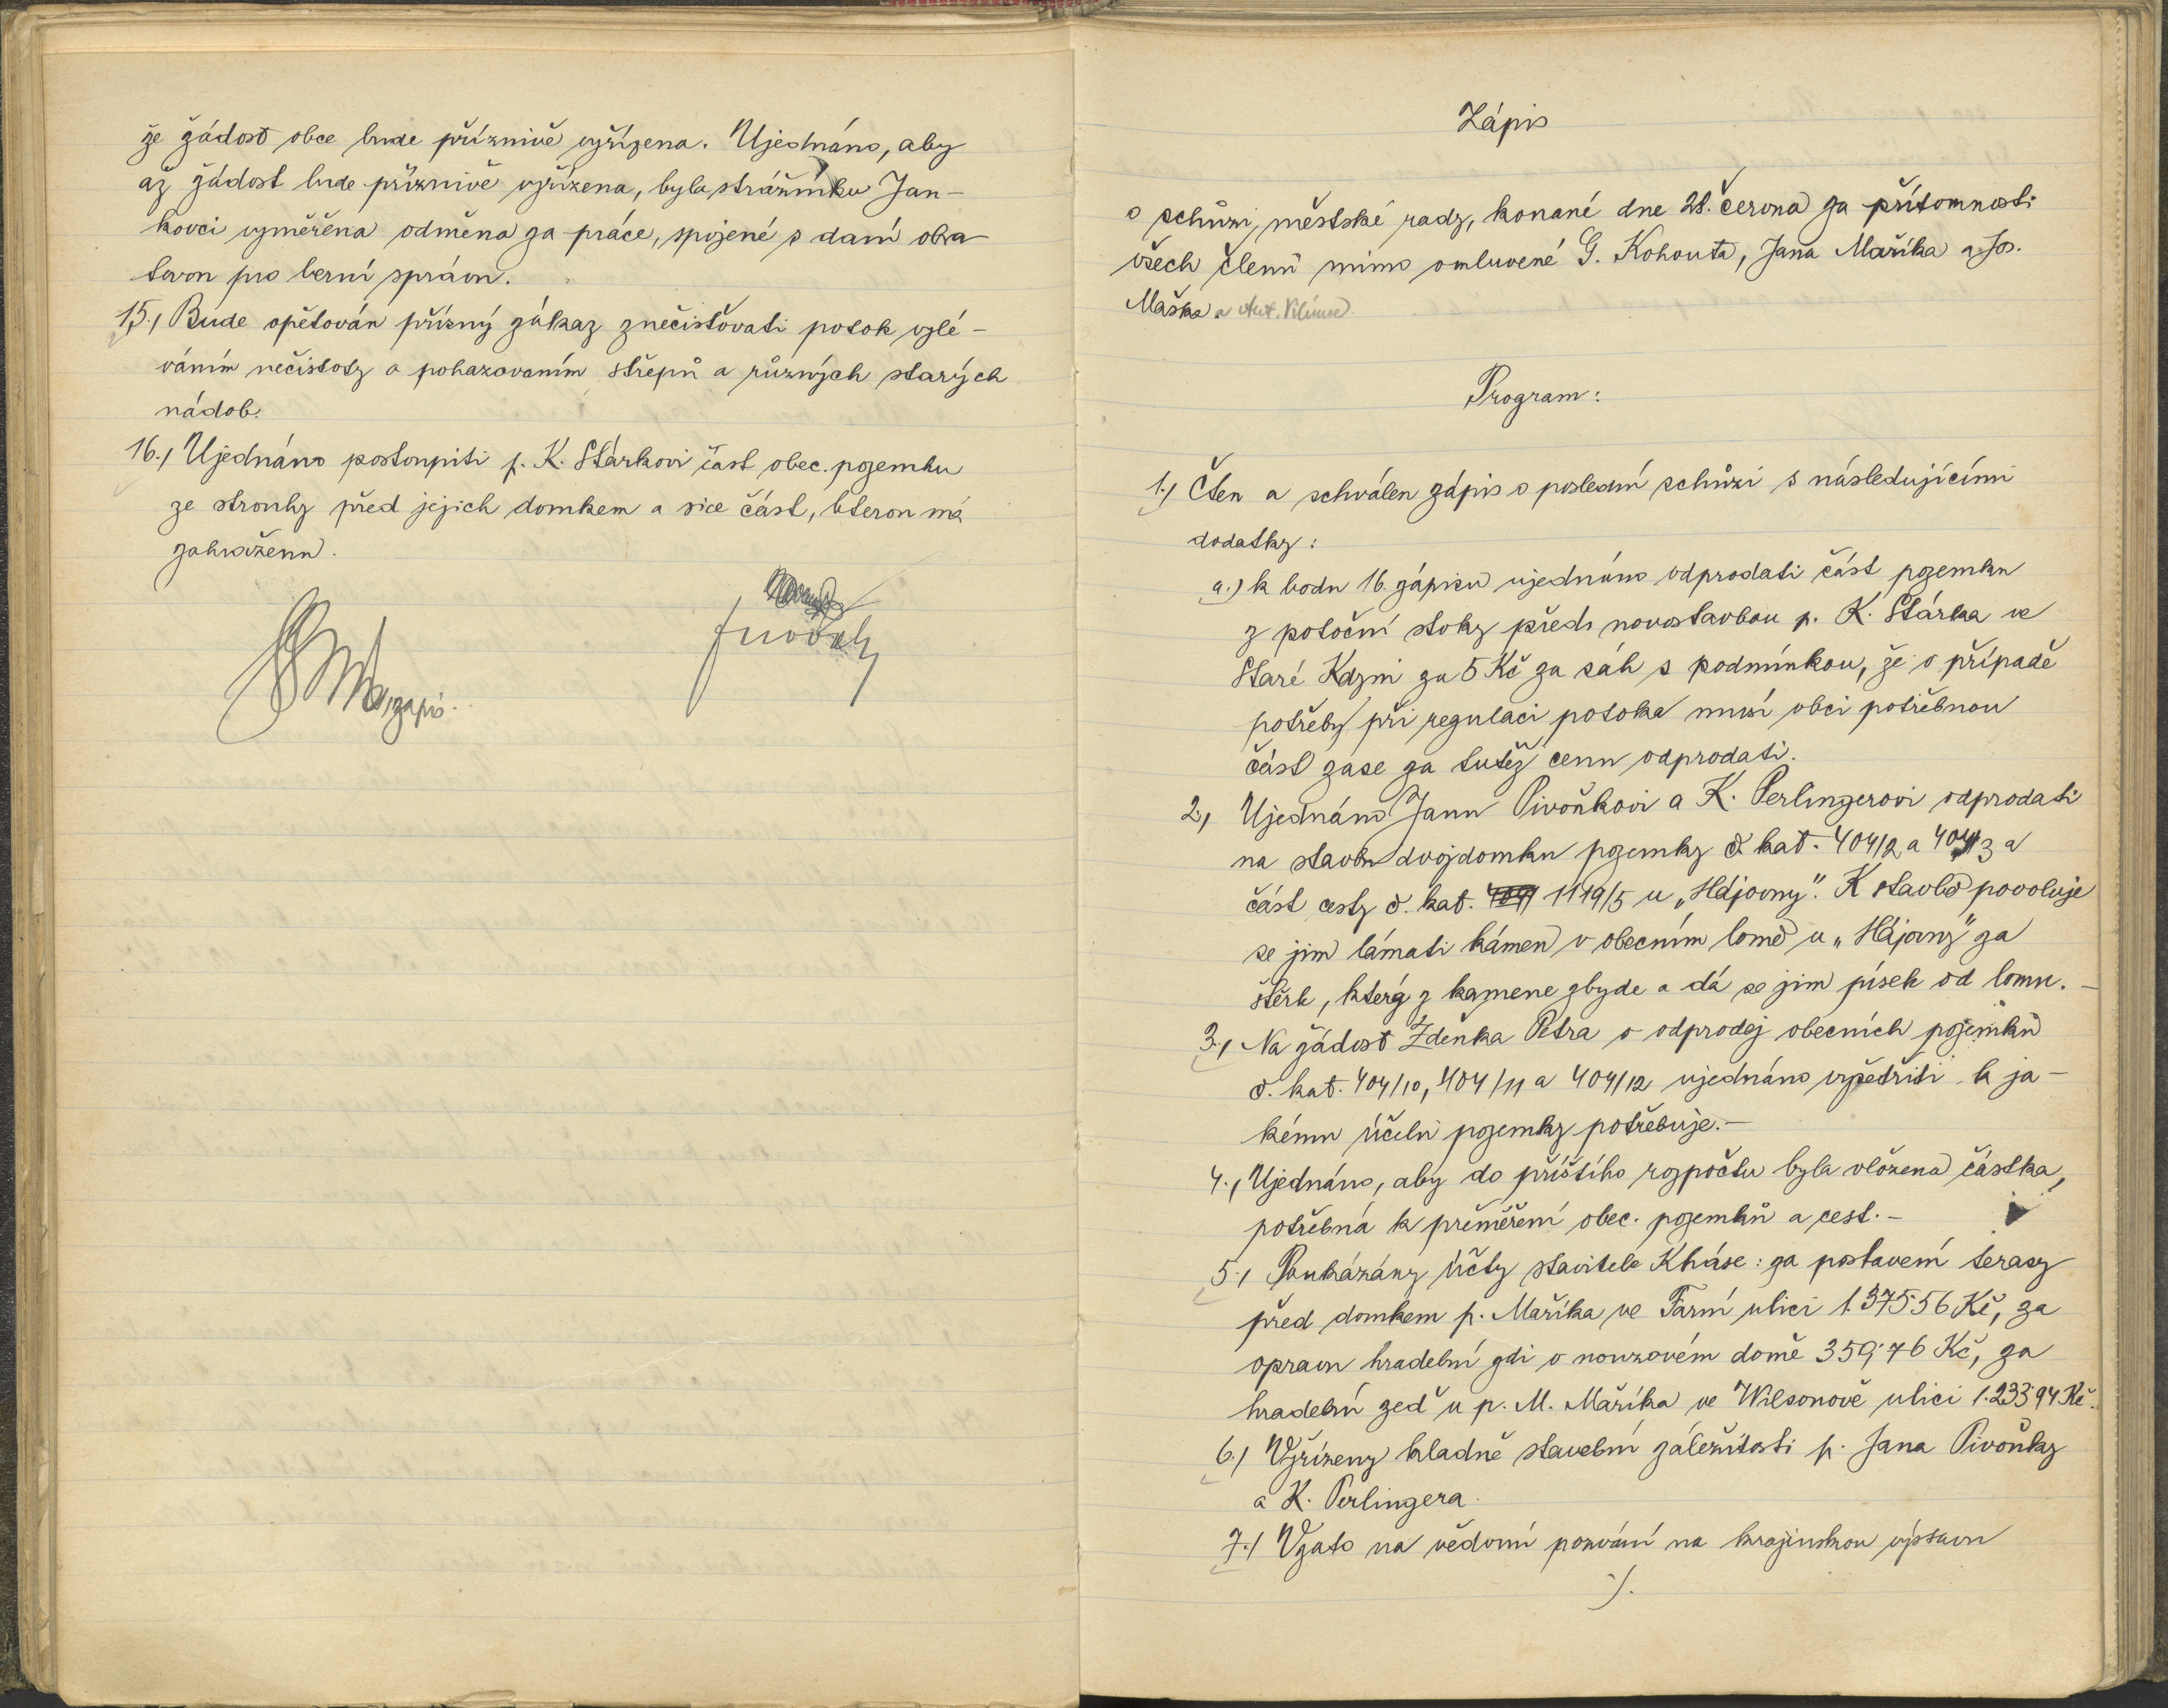 že žádost obce bude příznivě vyřízena. Ujednáno, aby
až žádost bude příznivě vyřízena, byla strážníku Jan-
kovci vyměřena odměna za práce, spojené s daní obra-
tovou pro berní správu.
15./ Bude opětován přísný zákaz znečisťovati potok vylé-
váním nečistoty a pohazovaním střepů a různých starých
nádob.
16./ Ujednáno postoupiti p. K. Stárkovi část obec. pozemku
ze strouhy před jejich domkem a sice část, kterou má
zahraženu.
zapis.
Zápis
o schůzi, městské rady, konané dne 28. června za přítomnosti
všech členů mimo omluvené G. Kohouta, Jana Maříka a Jos.
Maška a Ant. Vilima.
Program:
1./ Čten a schválen zápis o poslední schůzi s následujícími
dodatky:
a.) k bodu 16. zápisu ujednáno odprodati část pozemku
z potoční stoky před novostavbou p. K. Stárka ve
Staré Kdyni za 5 Kč za sáh s podmínkou, že v případě
potřeby při regulaci potoka musí obci potřebnou
část zase za tutéž cenu odprodati.
2./ Ujednáno Janu Pivoňkovi a K. Perlingerovi odprodati
na stavbu dvojdomku pozemky č. kat. 404/2 a 404/3 a
část cesty č. kat. 1119/5 u „Hájovny". K stavbě povoluje
se jim lámati kámen v obecním lomě u „Hájovny" za
štěrk, který z kamene zbyde a dá se jim písek od lomu.-
3./ Na žádost Zdeňka Petra o odprodej obecních pozemků
č. kat. 404/10, 404/11 a 404/12 ujednáno vyšetřiti k ja-
kému účelu pozemky potřebuje.-
4./ Ujednáno, aby do příštího rozpočtu byla vložena částka,
potřebná k přeměření obec. pozemků a cest.-
5./ Poukázány účty stavitele Kháse: za postavení terasy
před domkem p. Maříka ve Farní ulici 1.375·56 Kč, za
opravu hradební zdi v nouzovém domě 359·76 Kč, za
hradební zeď u p. M. Maříka ve Wilsonově ulici 1.233·94 Kč.
6./ Vyřízeny kladně stavební záležitosti p. Jana Pivoňky
a K. Perlingera.
7./ Vzato na vědomí pozvání na krajinskou výstavu
·/.